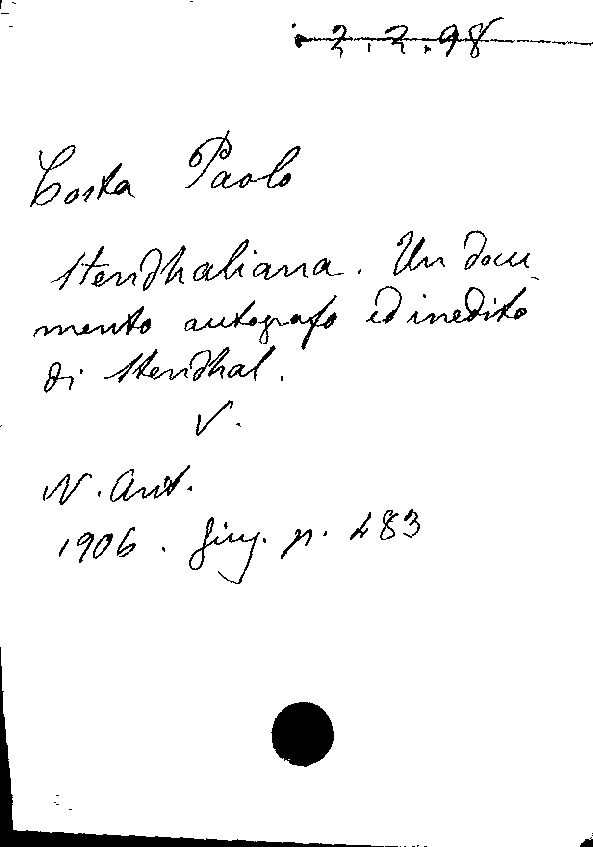 2.2.98
Costa Paolo
Stendhaliana. Un docu-
mento autografo ed inedito
di Stendhal.
V.
N. Ant.
1906. Giug. p. 483